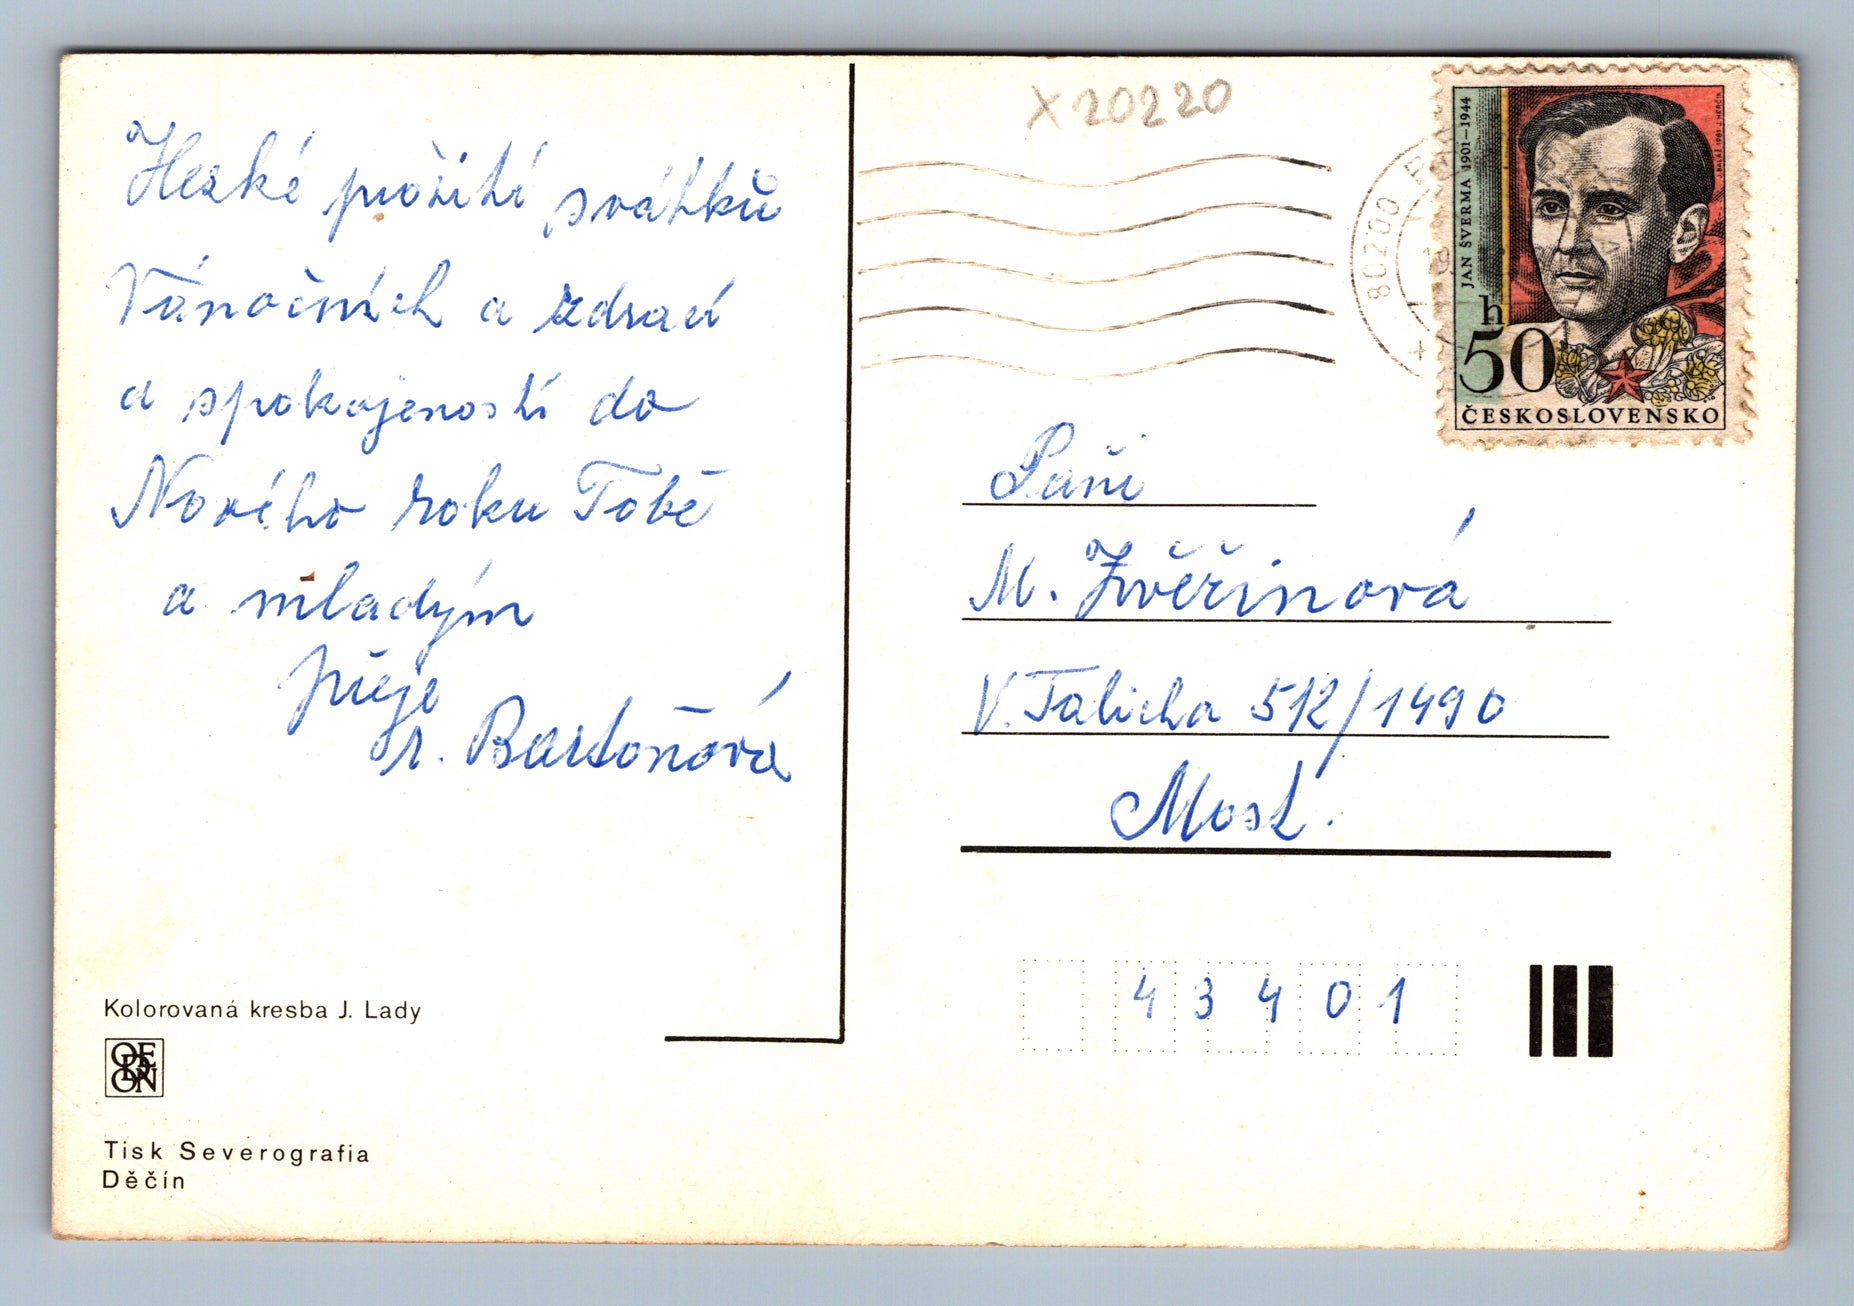 Hezké prožití svátků
Vánočních a zdraví
a spokojenosti do
Nového roku Tobě
a mladým
přeje
r. Bartoňová
Kolorovaná kresba J. Lady
ODEON
Tisk Severografia
Děčín
X 20220
80200
JAN ŠVERMA 1901–1944
h
50
ČESKOSLOVENSKO
Paňi
M. Zvěřinová
V. Talicha 512/1490
Most.
43401